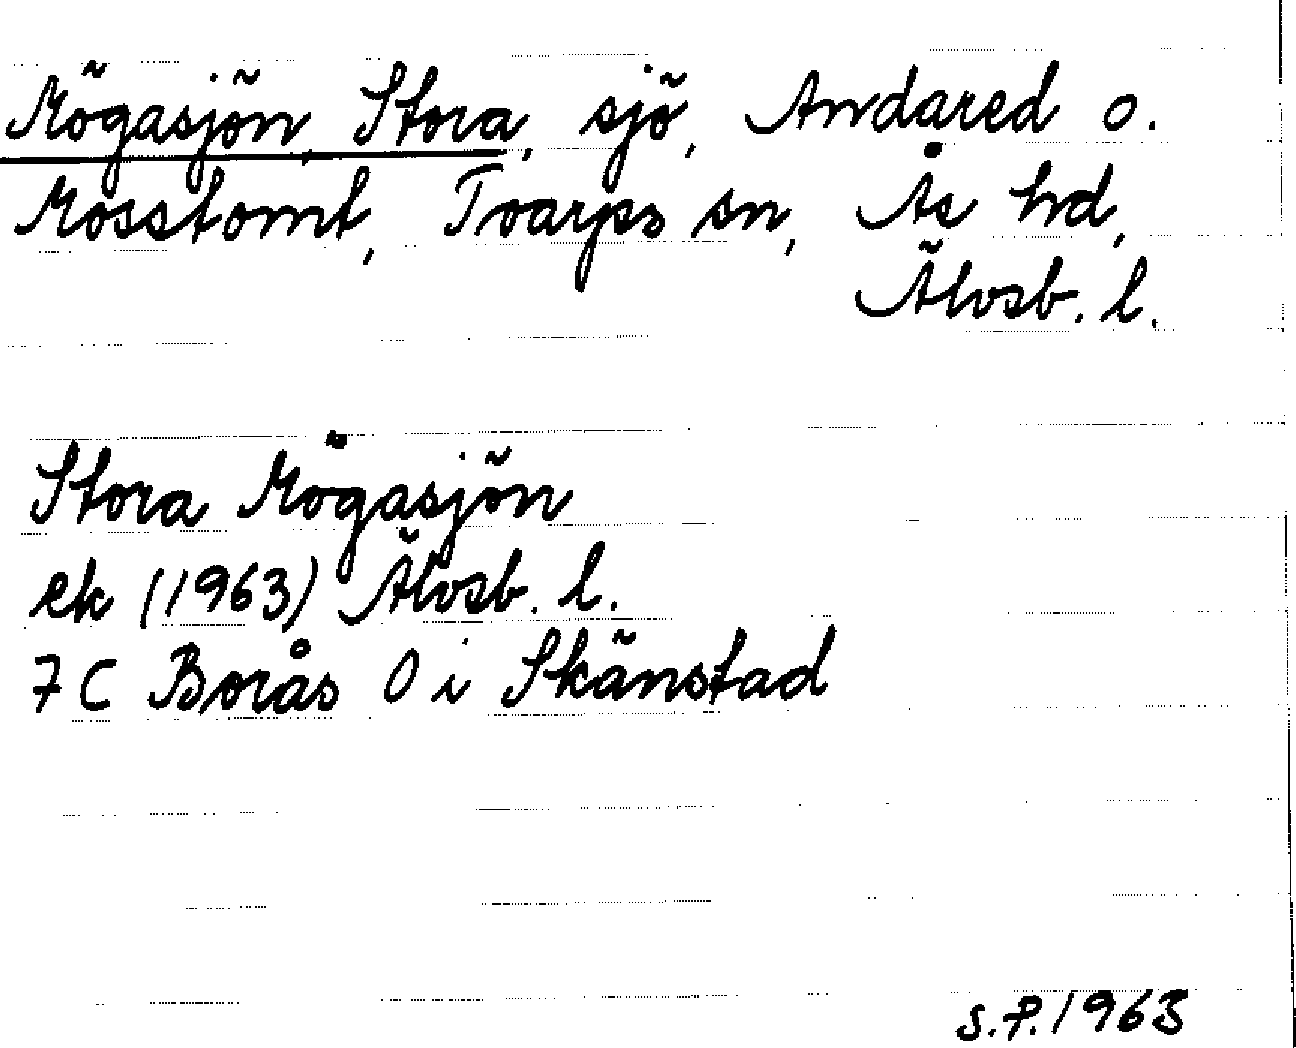 Mögasjön, Stora, sjö, Andared o.
Mosstomt, Tvarps sn, Ås hd,
Älvsb. l.
Stora Mögasjön
ek (1963) Älvsb. l.
7 C Borås 0 i Skänstad
S.P. 1963